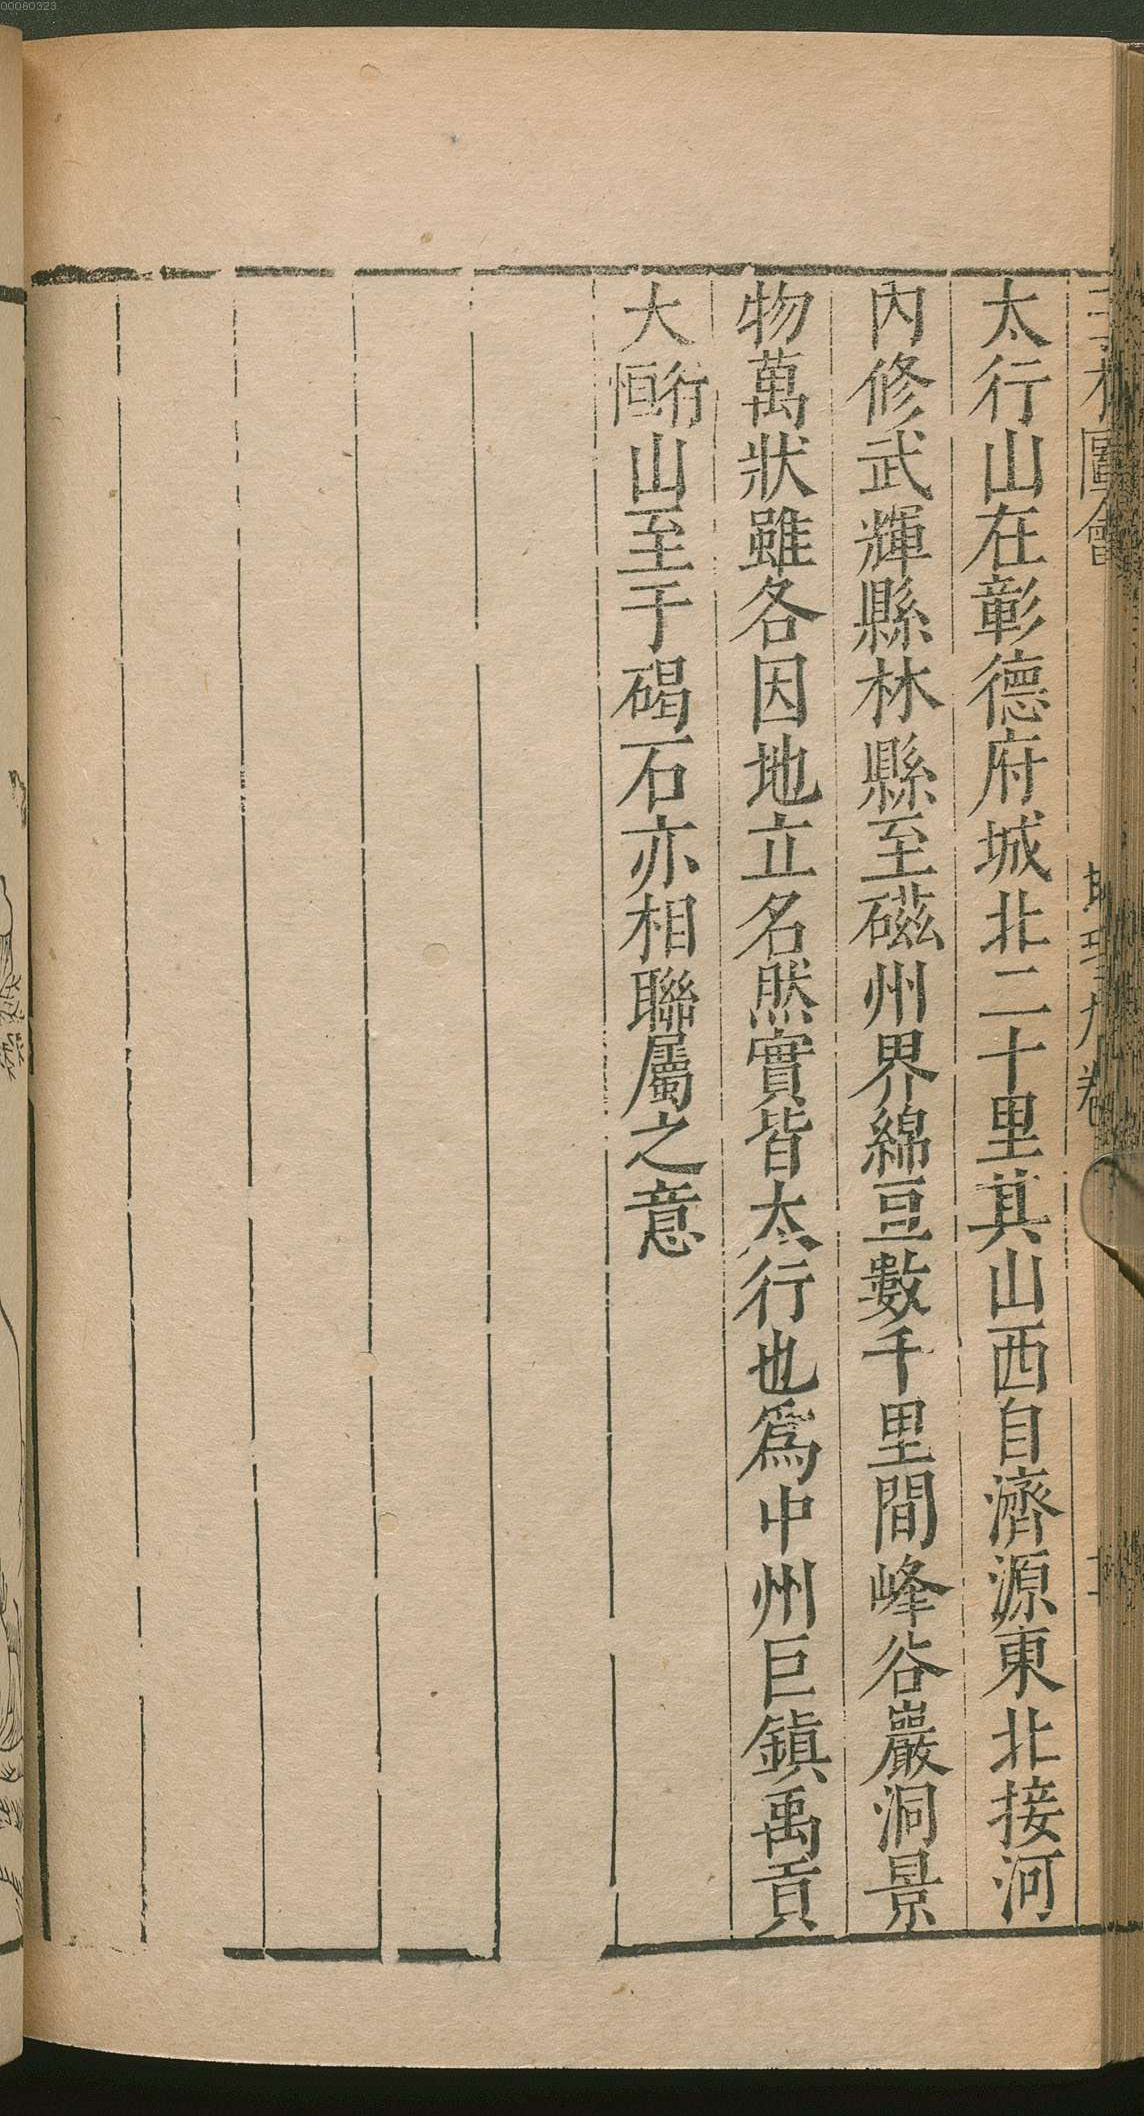 00060323
三才圖會 地理九卷
太行山在彰德府城北二十里其山西自濟源東北接河
內修武輝縣林縣至磁州界綿亘數千里間峰谷巖洞景
物萬狀雖各因地立名然實皆太行也為中州巨鎮禹貢
太行恒山至于碣石亦相聯屬之意